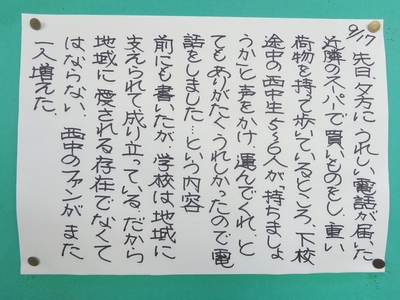 9/17
先日、夕方にうれしい電話が届いた
近隣のスーパーで買いものをし、重い
荷物を持って歩いているところ、下校
途中の西中生5~6人が「持ちましょ
うか」と声をかけ、運んでくれ、と
てもありがたく、うれしかったので電
話をしました…という内容
前にも書いたが、学校は地域に
支えられて成り立っている。だから
地域に愛される存在でなくて
はならない。西中のファンがまた
一人増えた。